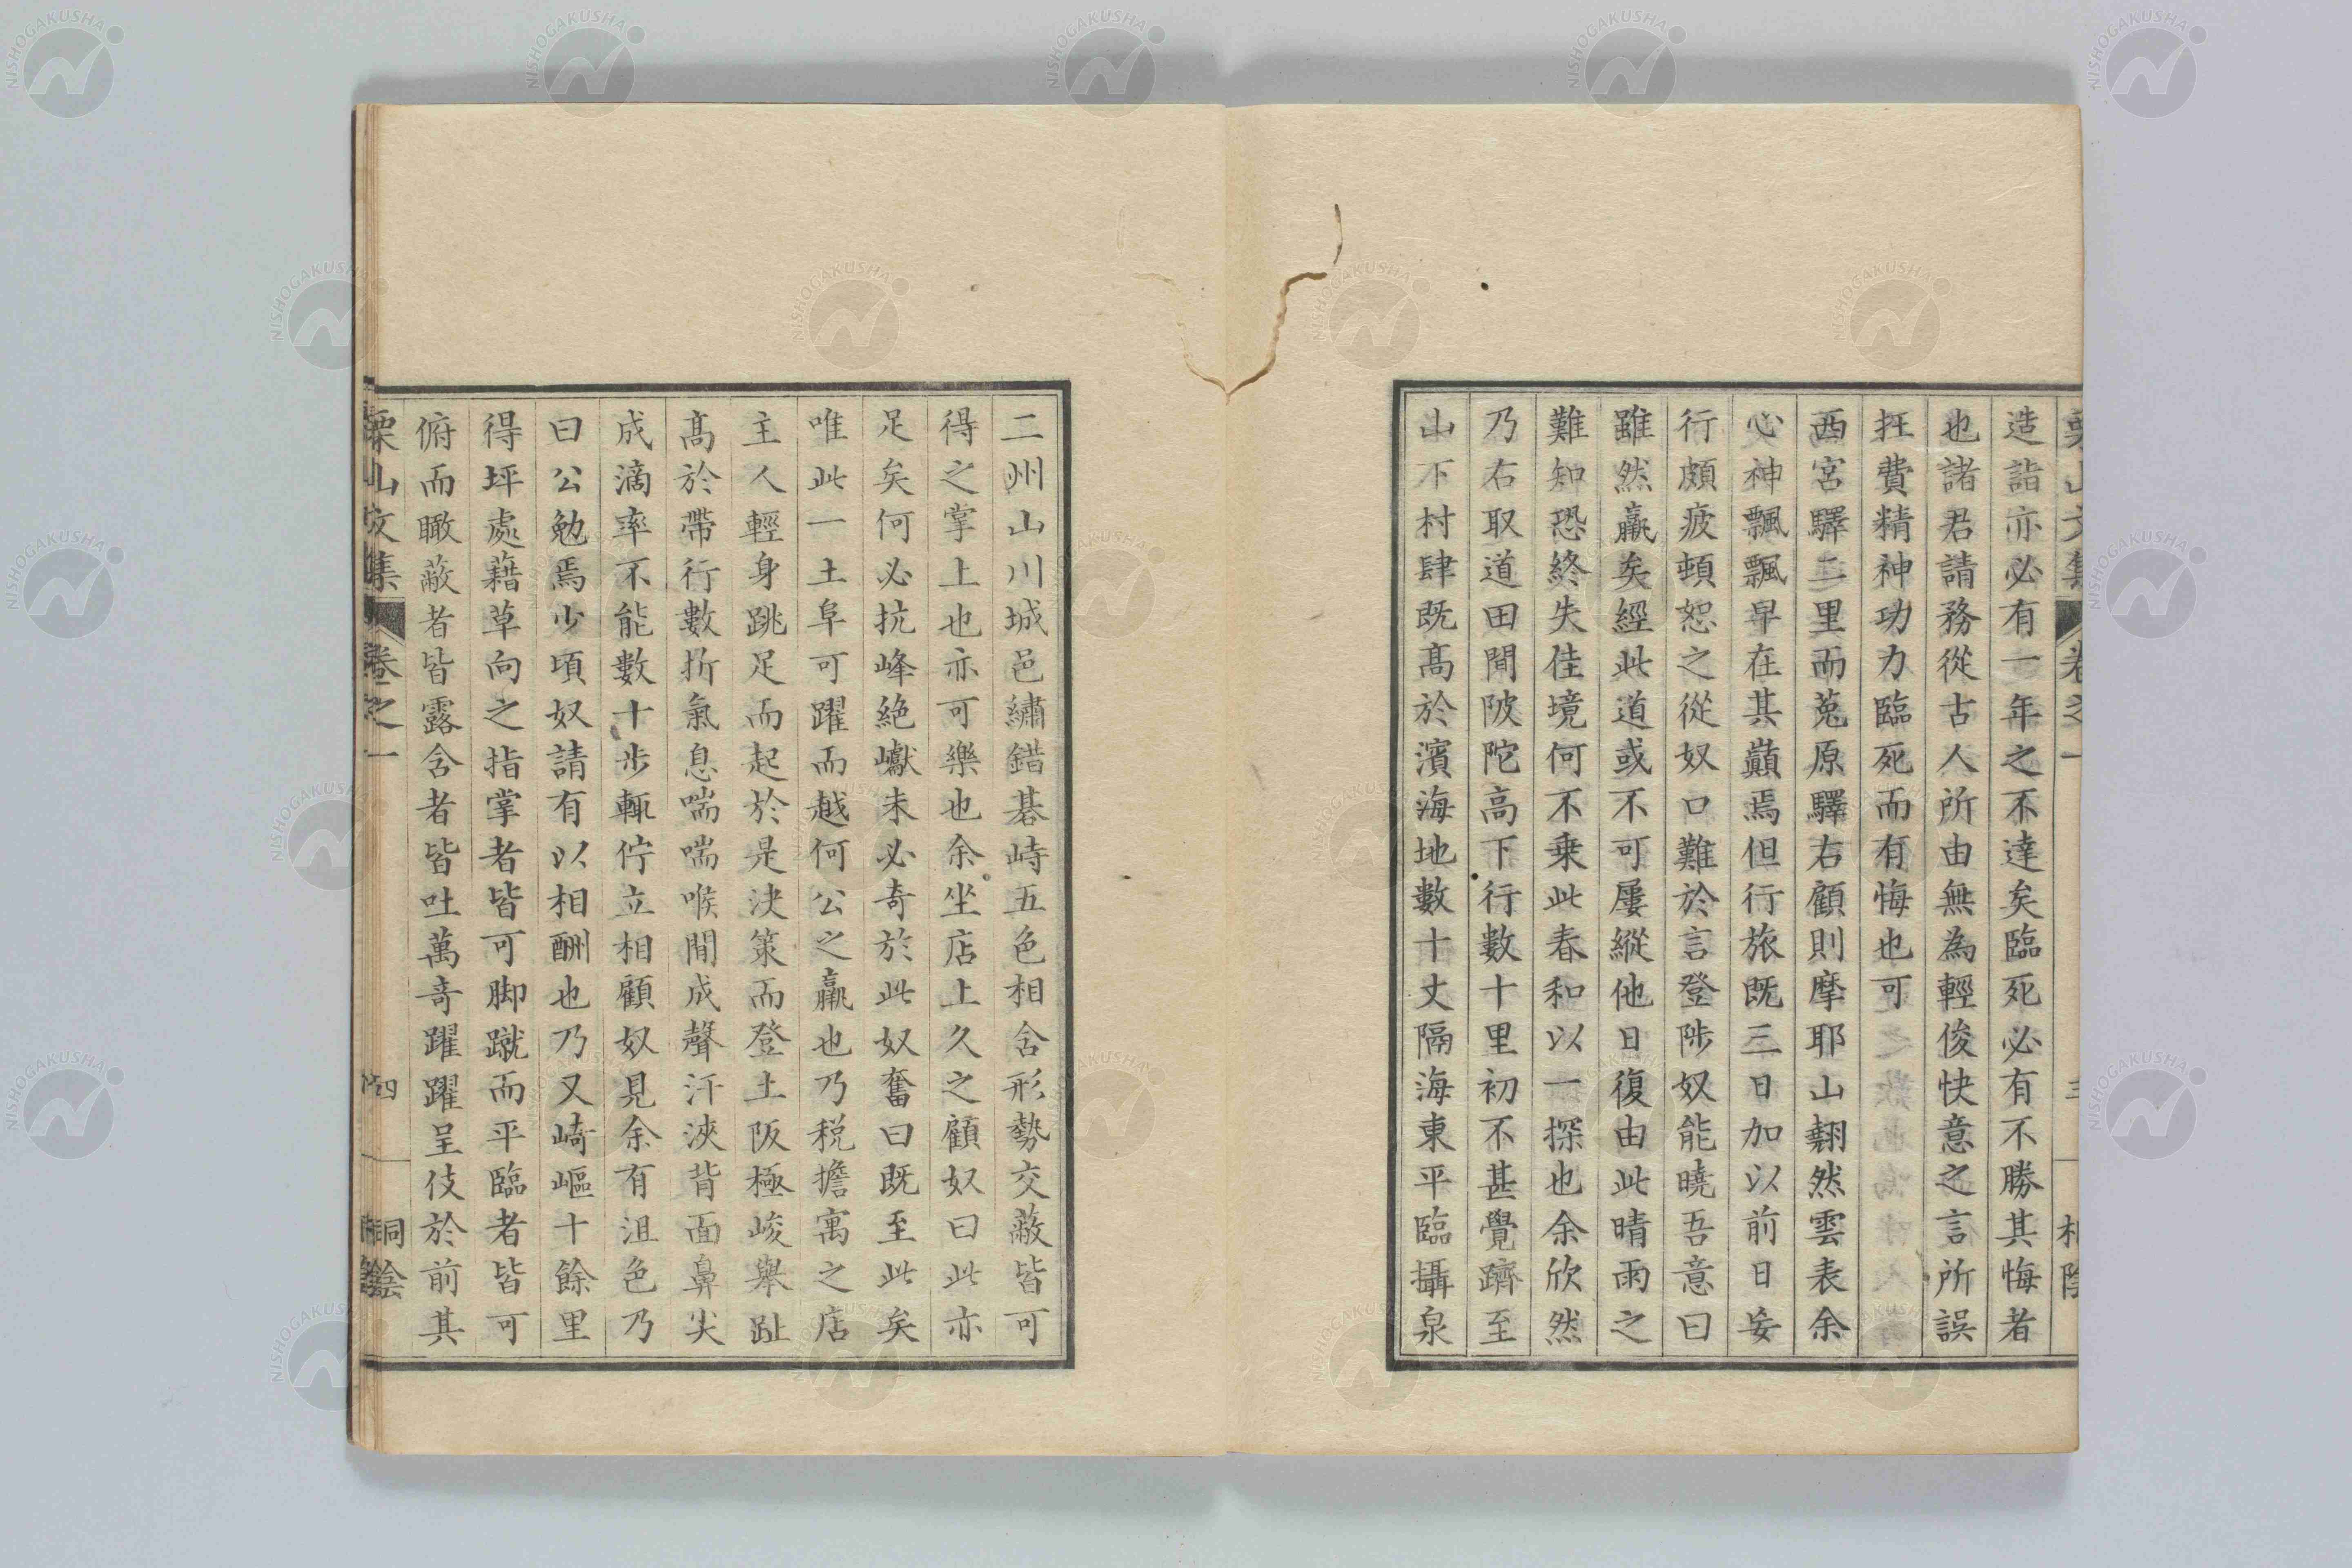 造詣亦必有一年之不達矣臨死必有不勝其悔者
也諸君請務從古人所由無為輕俊快意之言所誤
抂費精神功力臨死而有悔也可
西宮驛二里而菟原驛右顧則摩耶山翹然雲表余
心神飄飄早在其巔焉但行旅既三日加以前日妄
行頗疲頓恕之從奴口難於言登陟奴能曉吾意曰
雖然羸矣經此道或不可屢縱他日復由此晴雨之
難知恐終失佳境何不乗此春和以一探也余欣然
乃右取道田間陂陀高下行數十里初不甚覺躋至
山下村肆既髙於濱海地數十丈隔海東平臨攝泉
二州山川城邑繡錯碁峙五色相含形勢交蔽皆可
得之掌上也亦可樂也余坐店上久之顧奴曰此亦
足矣何必抗峰絶巘未必奇於此奴奮曰既至此矣
唯此一土阜可躍而越何公之羸也乃税擔寓之店
主人輕身跳足而起於是決策而登土阪極峻舉趾
髙於帶行數折氣息喘喘喉間成聲汗浹背面鼻尖
成滴率不能數十步輒佇立相顧奴見余有沮色乃
曰公勉焉少頃奴請有以相酬也乃又崎嶇十餘里
得坪處藉草向之指掌者皆可脚蹴而平臨者皆可
俯而瞰蔽者皆露含者皆吐萬奇躍躍呈伎於前其
栗山文集 卷之一 四
桐陰
NISHOGAKUSHA